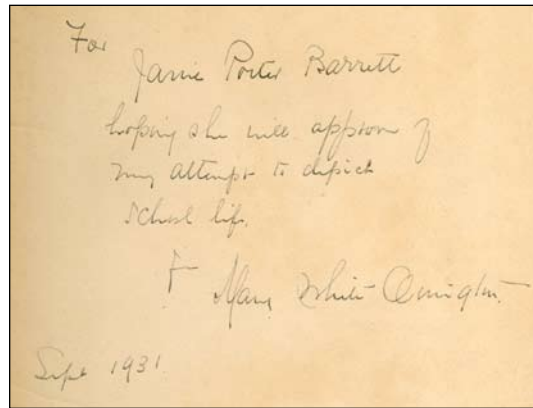 For
Janie Porter Barrett
hoping she will approve of
my attempt to depict
school life.
Mary White Ovington.
Sept 1931